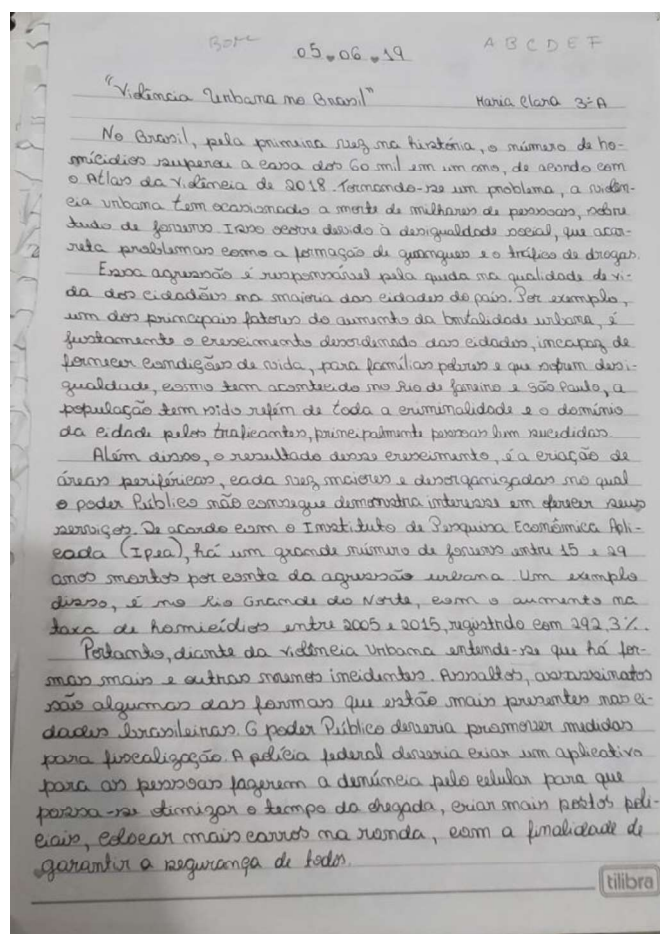 Bom
A B C D E F
05.06.19
"Violência Urbana no Brasil"
Maria Clara 3ºA
No Brasil, pela primeira vez na história, o número de ho-
micídios superou a casa dos 60 mil em um ano, de acordo com
o Atlas da Violência de 2018. Tornando-se um problema, a violên-
cia urbana tem ocasionado a morte de milhares de pessoas, sobre
tudo de jovens. Isso ocorre devido à desigualdade social, que acar-
reta problemas como a formação de guangues e o tráfico de drogas.
Essa agressão é responsável pela queda na qualidade de vi-
da dos cidadãos na maioria das cidades do país. Por exemplo,
um dos principais fatores do aumento da brutalidade urbana, é
justamente o crescimento desordenado das cidades, incapaz de
fornecer condições de vida, para famílias pobres e que sofrem desi-
gualdade, como tem acontecido no Rio de Janeiro e São Paulo, a
população tem sido refém de toda a criminalidade e o domínio
da cidade pelos traficantes, principalmente pessoas bem sucedidas.
Além disso, o resultado desse crescimento, é a criação de
áreas periféricas, cada vez maiores e desorganizadas no qual
o poder Público não consegue demonstra interesse em oferecer seus
serviços. De acordo com o Instituto de Pesquisa Econômica Apli-
cada (Ipea), há um grande número de jovens entre 15 e 29
anos mortos por conta da agressão urbana. Um exemplo
disso, é no Rio Grande do Norte, com o aumento na
taxa de homicídios entre 2005 e 2015, registrado com 292,3%.
Portanto, diante da violência Urbana entende-se que há for-
mas mais e outras menos incidentes. Assaltos, assassinatos
são algumas das formas que estão mais presentes nas ci-
dades brasileiras. O poder Público deveria promover medidas
para fiscalização. A polícia federal deveria criar um aplicativo
para as pessoas fazerem a denúncia pelo celular para que
possa-se otimizar o tempo da chegada, criar mais postos poli-
ciais, colocar mais carros na ronda, com a finalidade de
garantir a segurança de todos.
tilibra